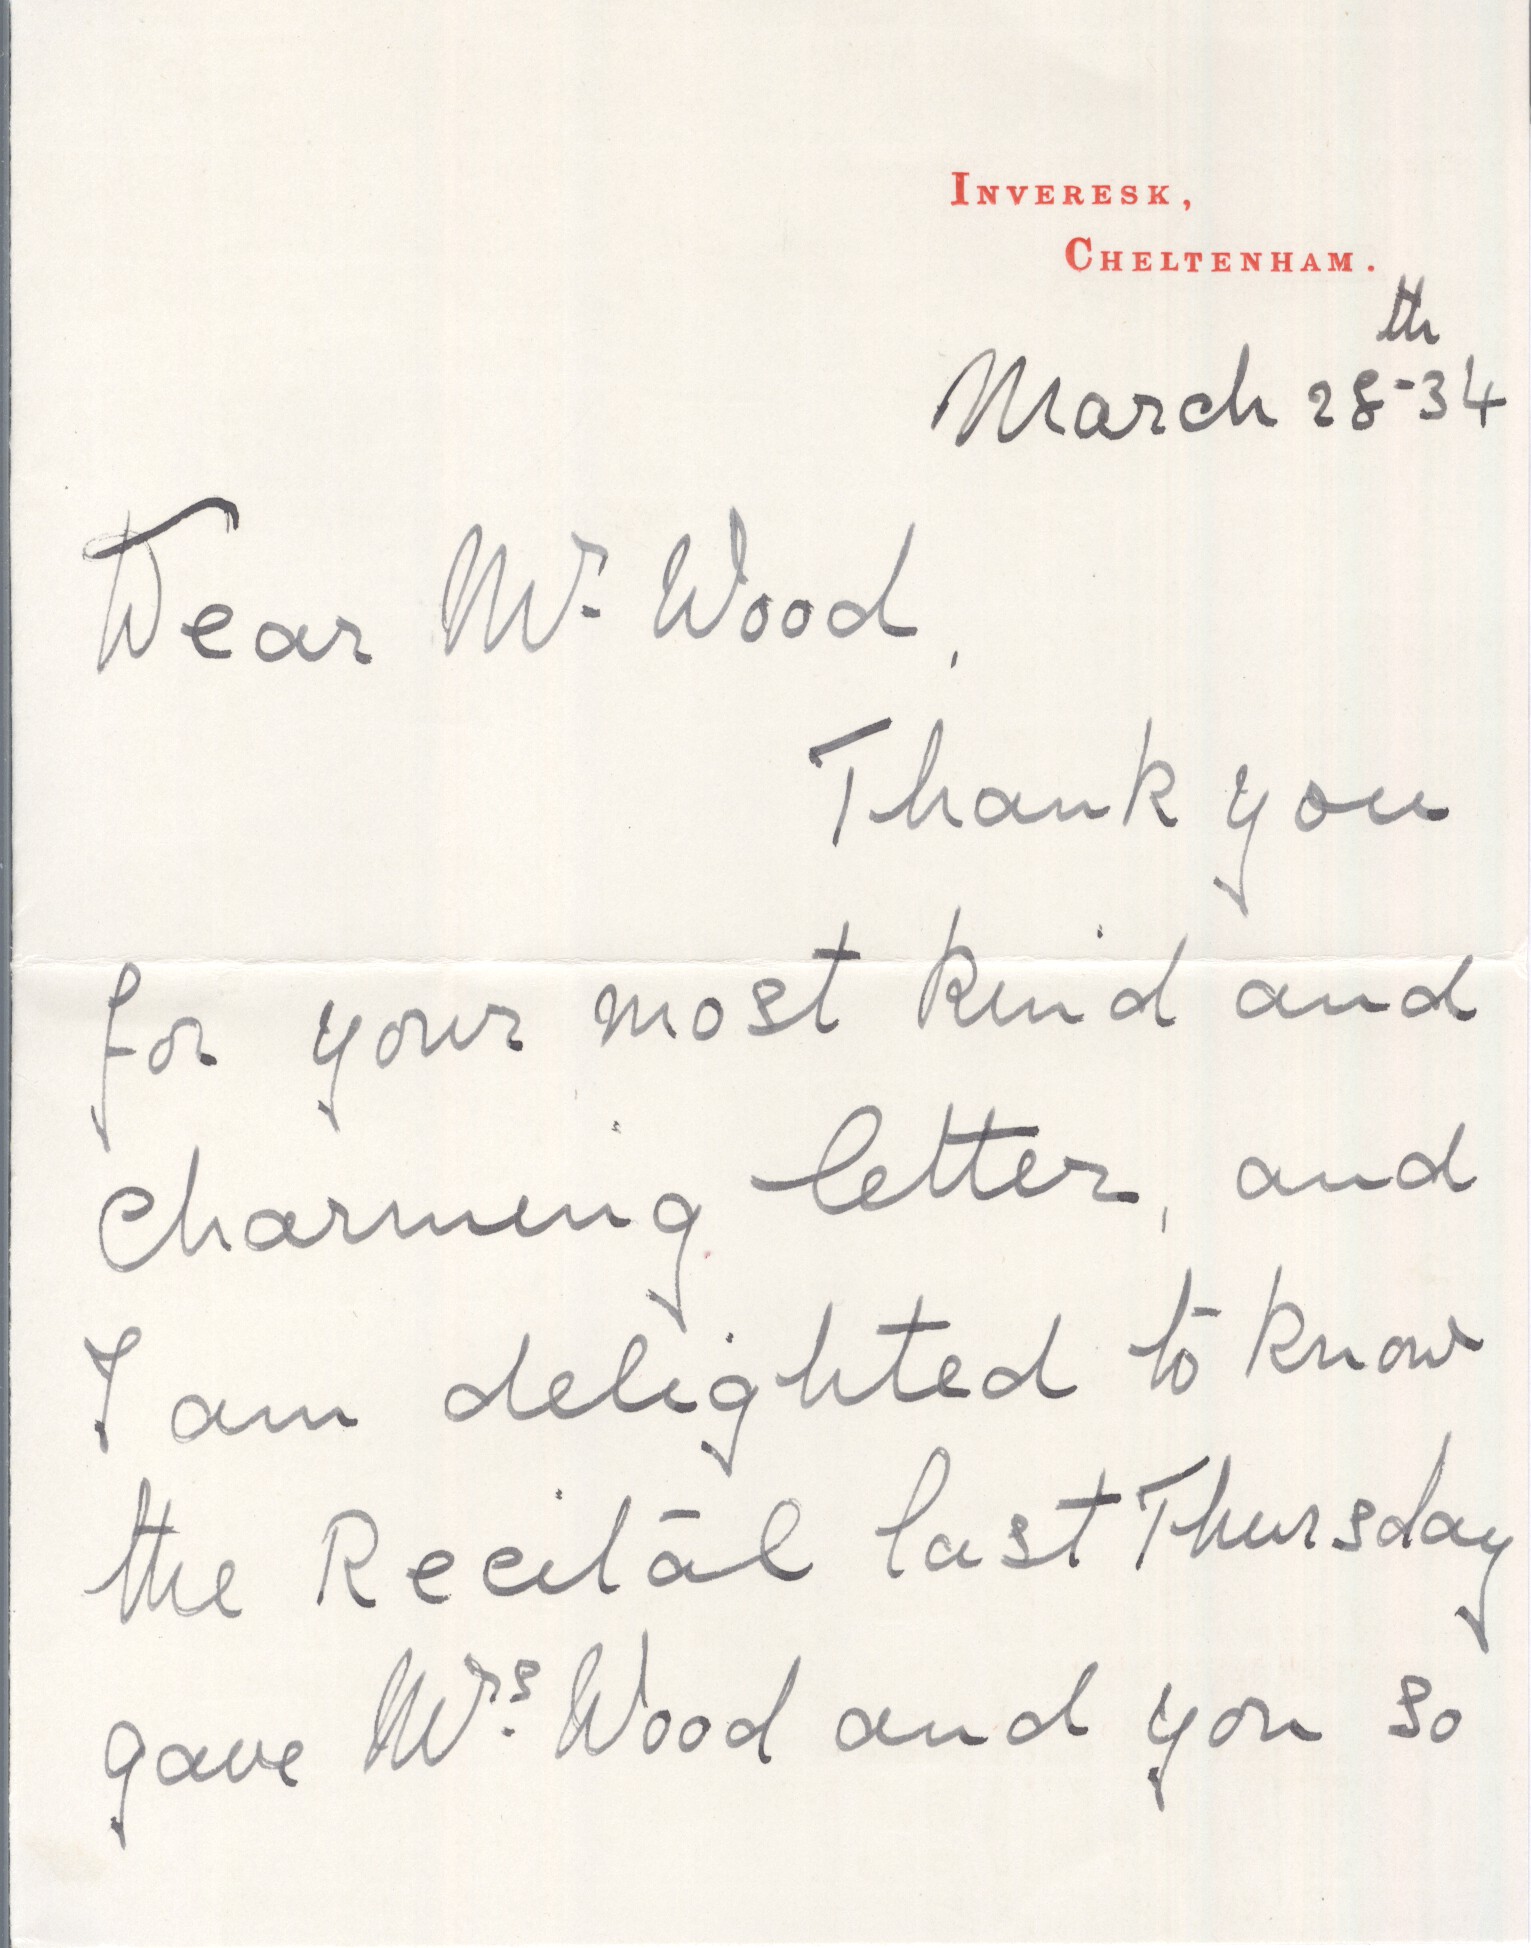 INVERESK,
CHELTENHAM.
March 28th-34
Dear Mr. Wood,
Thank you
for your most kind and
charming letter, and
I am delighted to know
the Recital last Thursday
gave Mrs. Wood and you so